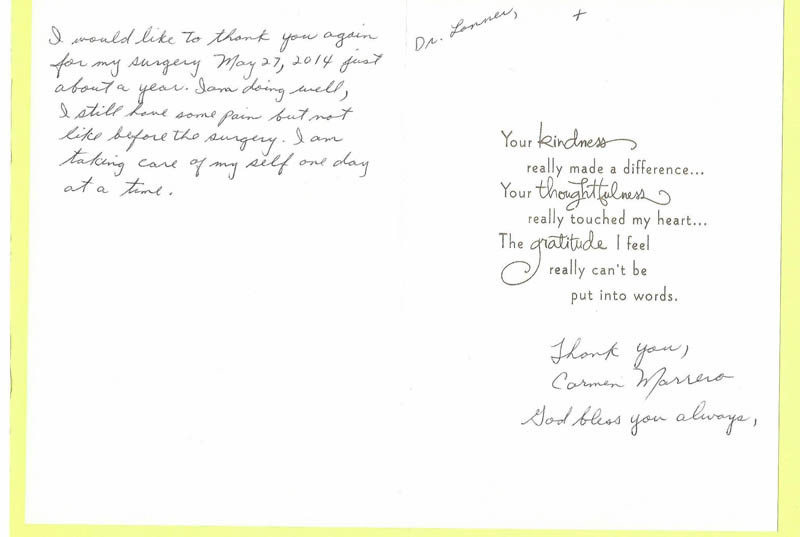 I would like to thank you again
for my surgery May 27, 2014 just
about a year. I am doing well,
I still have some pain but not
like before the surgery. I am
taking care of my self one day
at a time.
Dr. Lonner, +
Your kindness
really made a difference...
Your thoughtfulness
really touched my heart...
The gratitude I feel
really can't be
put into words.
Thank you,
Carmen Marrero
God bless you always,